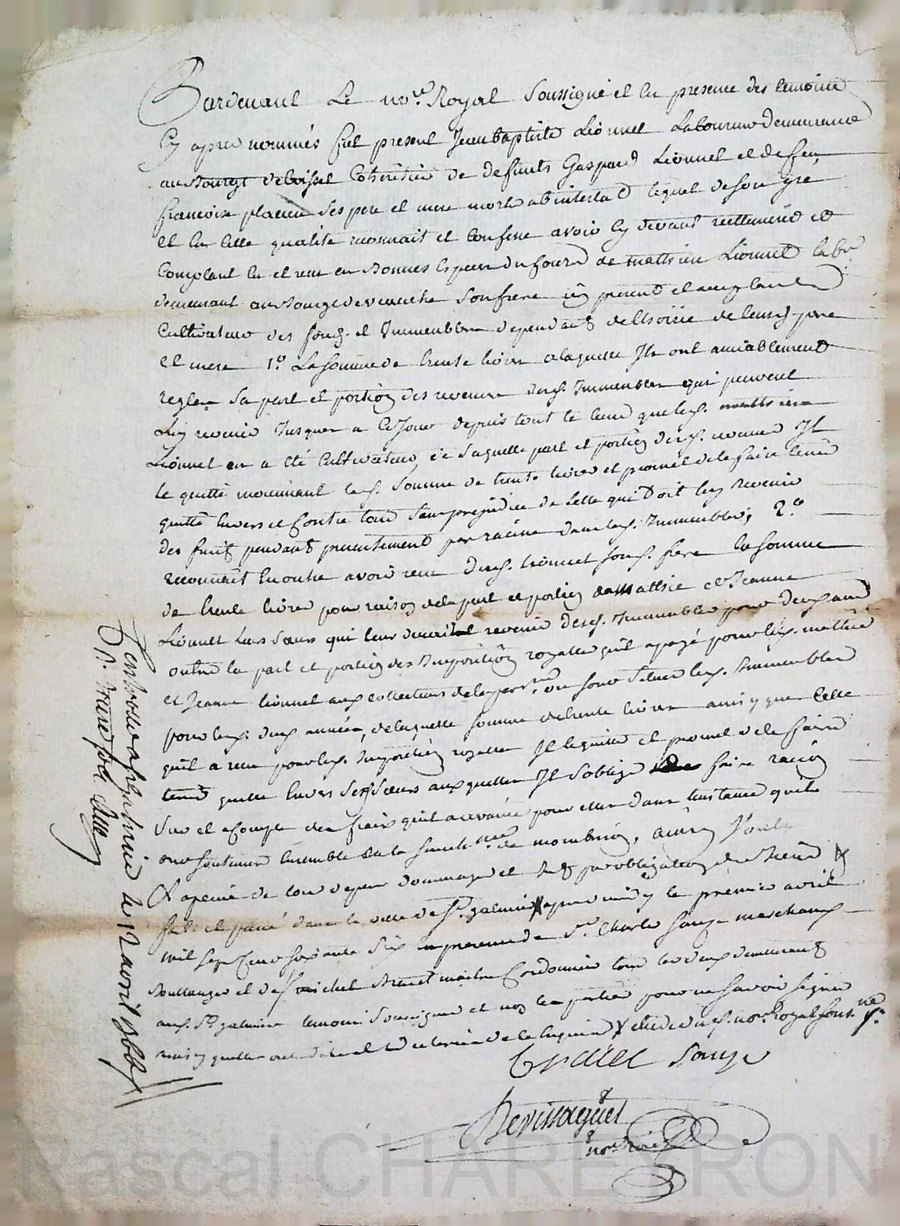 Pardevant Le nore. Royal Soussigné et En presence des temoins
Cy apres nommés fut present Jean baptiste Lionnet Laboureur demeurant
au Bourg de Coheritier de defunts Gaspard Lionnet et de feu
francoise ses pere et mere morts abintestat lequel de son gre
Et En Cette qualité reconnait et Confesse avoir Cy devant reellement et
Comptant Eu et reçu en Bonnes Especes du Cours de matthieu Lionnet labr
demeurant au Bourg de son frere icy present et acceptant
Cultivateur des fonds et Immeubles dependants de lhoirie de leurs pere
et mere 1o. La somme de trente livres a laquelle Ils ont amiablement
reglé Sa part et portion des revenus desd. Immeubles qui peuvent
Luy revenir Jusques a Ce Jour depuis tout le tems que led. matthieu
Lionnet en a été Cultivateur, de laquelle part et portion desd. revenus Il
le quitte moiennant lad. Somme de trente livres et promet de le faire tenir
quitte Envers et Contre tous Sans prejudice de Celle qui Doit luy Revenir
des fruits pendants presentement par racine dans lesd. Immeubles; 2o.
reconnait En outre avoir reçu dud. Lionnet sond. frere la somme
de trente livres pour raison de la part et portion de matthie et Jeanne
Lionnet Leurs Sœurs qui leur devrait revenir desd. Immeubles pour deux ans
outre la part et portion des Impositions royalles qu'il a payé pour lesd. matthie
et Jeanne Lionnet aux collecteurs de la parroisse ou sont Situés lesd. Immeubles
pour lesd. deux années, de laquelle somme de trente livres ainsy que Celle
qu'il a reçu pour lesd. Impositions royalles Il le quitte et promet de le faire
tenir quitte Envers ses sœurs auxquelles Il s'oblige de faire raison
Sur et a Compte des fraix qu'il a avancé pour elles dans l'instance qu'ils
ont soutenue Ensemble En la senechée. de montbrison, ainsy
A apeine de tous depens dommages et par obligation de biens
fait et passé dans la ville de St. galmier apres midy le premier avril
mil sept Cent soixante Six en presence de Sr. Charles Sauze marchand
Boullanger et de Sr. michel maitre Cordonnier tous les deux demeurants
aud. St. galmier temoins Soussignés et non les parties pour ne Savoir signer
ainsy quelles ont dit
Sauze
Devissaguet
nore. Roial
Controllé a St. galmier le 12 avril 1766
Pascal CHAREYRON